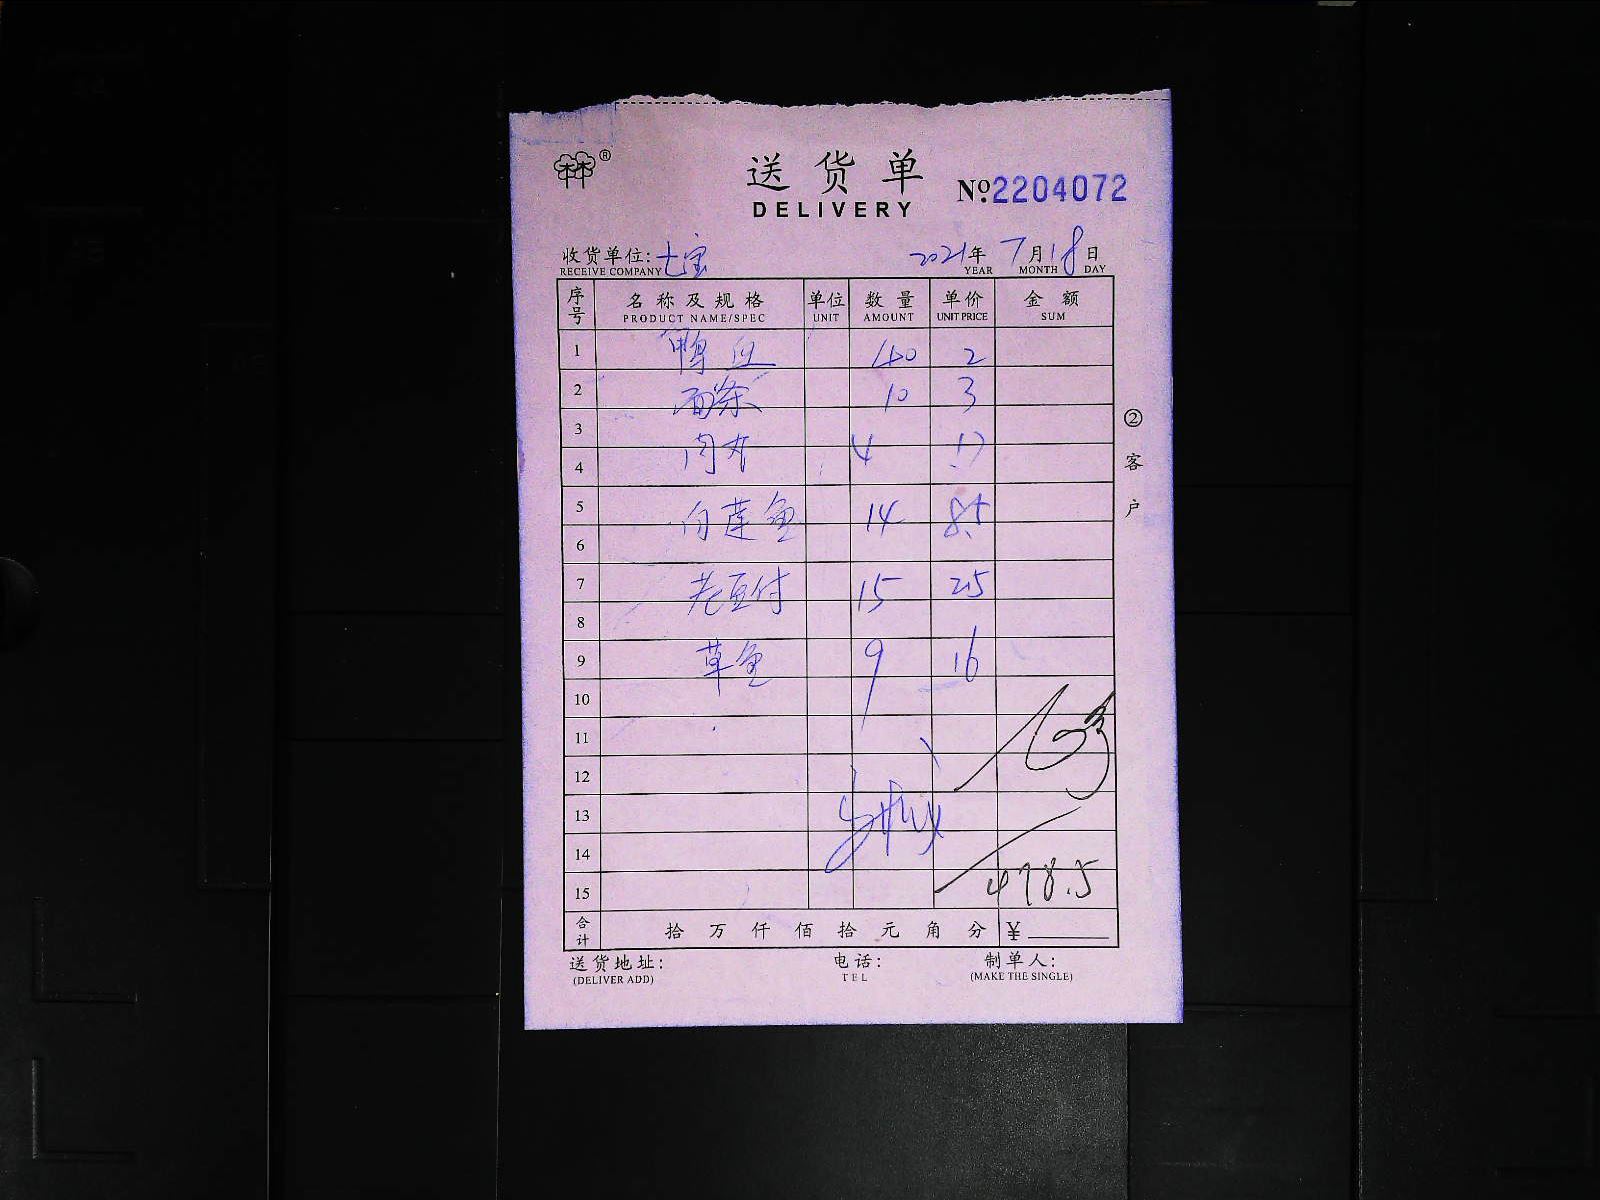 林林®
送货单
DELIVERY
№2204072
收货单位:七宝 2021年7月18日
RECEIVE COMPANY YEAR MONTH DAY
序号 名称及规格 单位 数量 单价 金额
PRODUCT NAME/SPEC UNIT AMOUNT UNIT PRICE SUM
1 鸭血 40 2
2 面条 10 3
3
肉丸 4 17
4
5 白莲鱼 14 8.5
6
7 老豆付 15 2.5
8
9 草鱼 9 16
10
11
12
13
14
15 478.5
合计 拾 万 仟 佰 拾 元 角 分 ¥
送货地址: 电话: 制单人:
(DELIVER ADD) TEL (MAKE THE SINGLE)
②客户